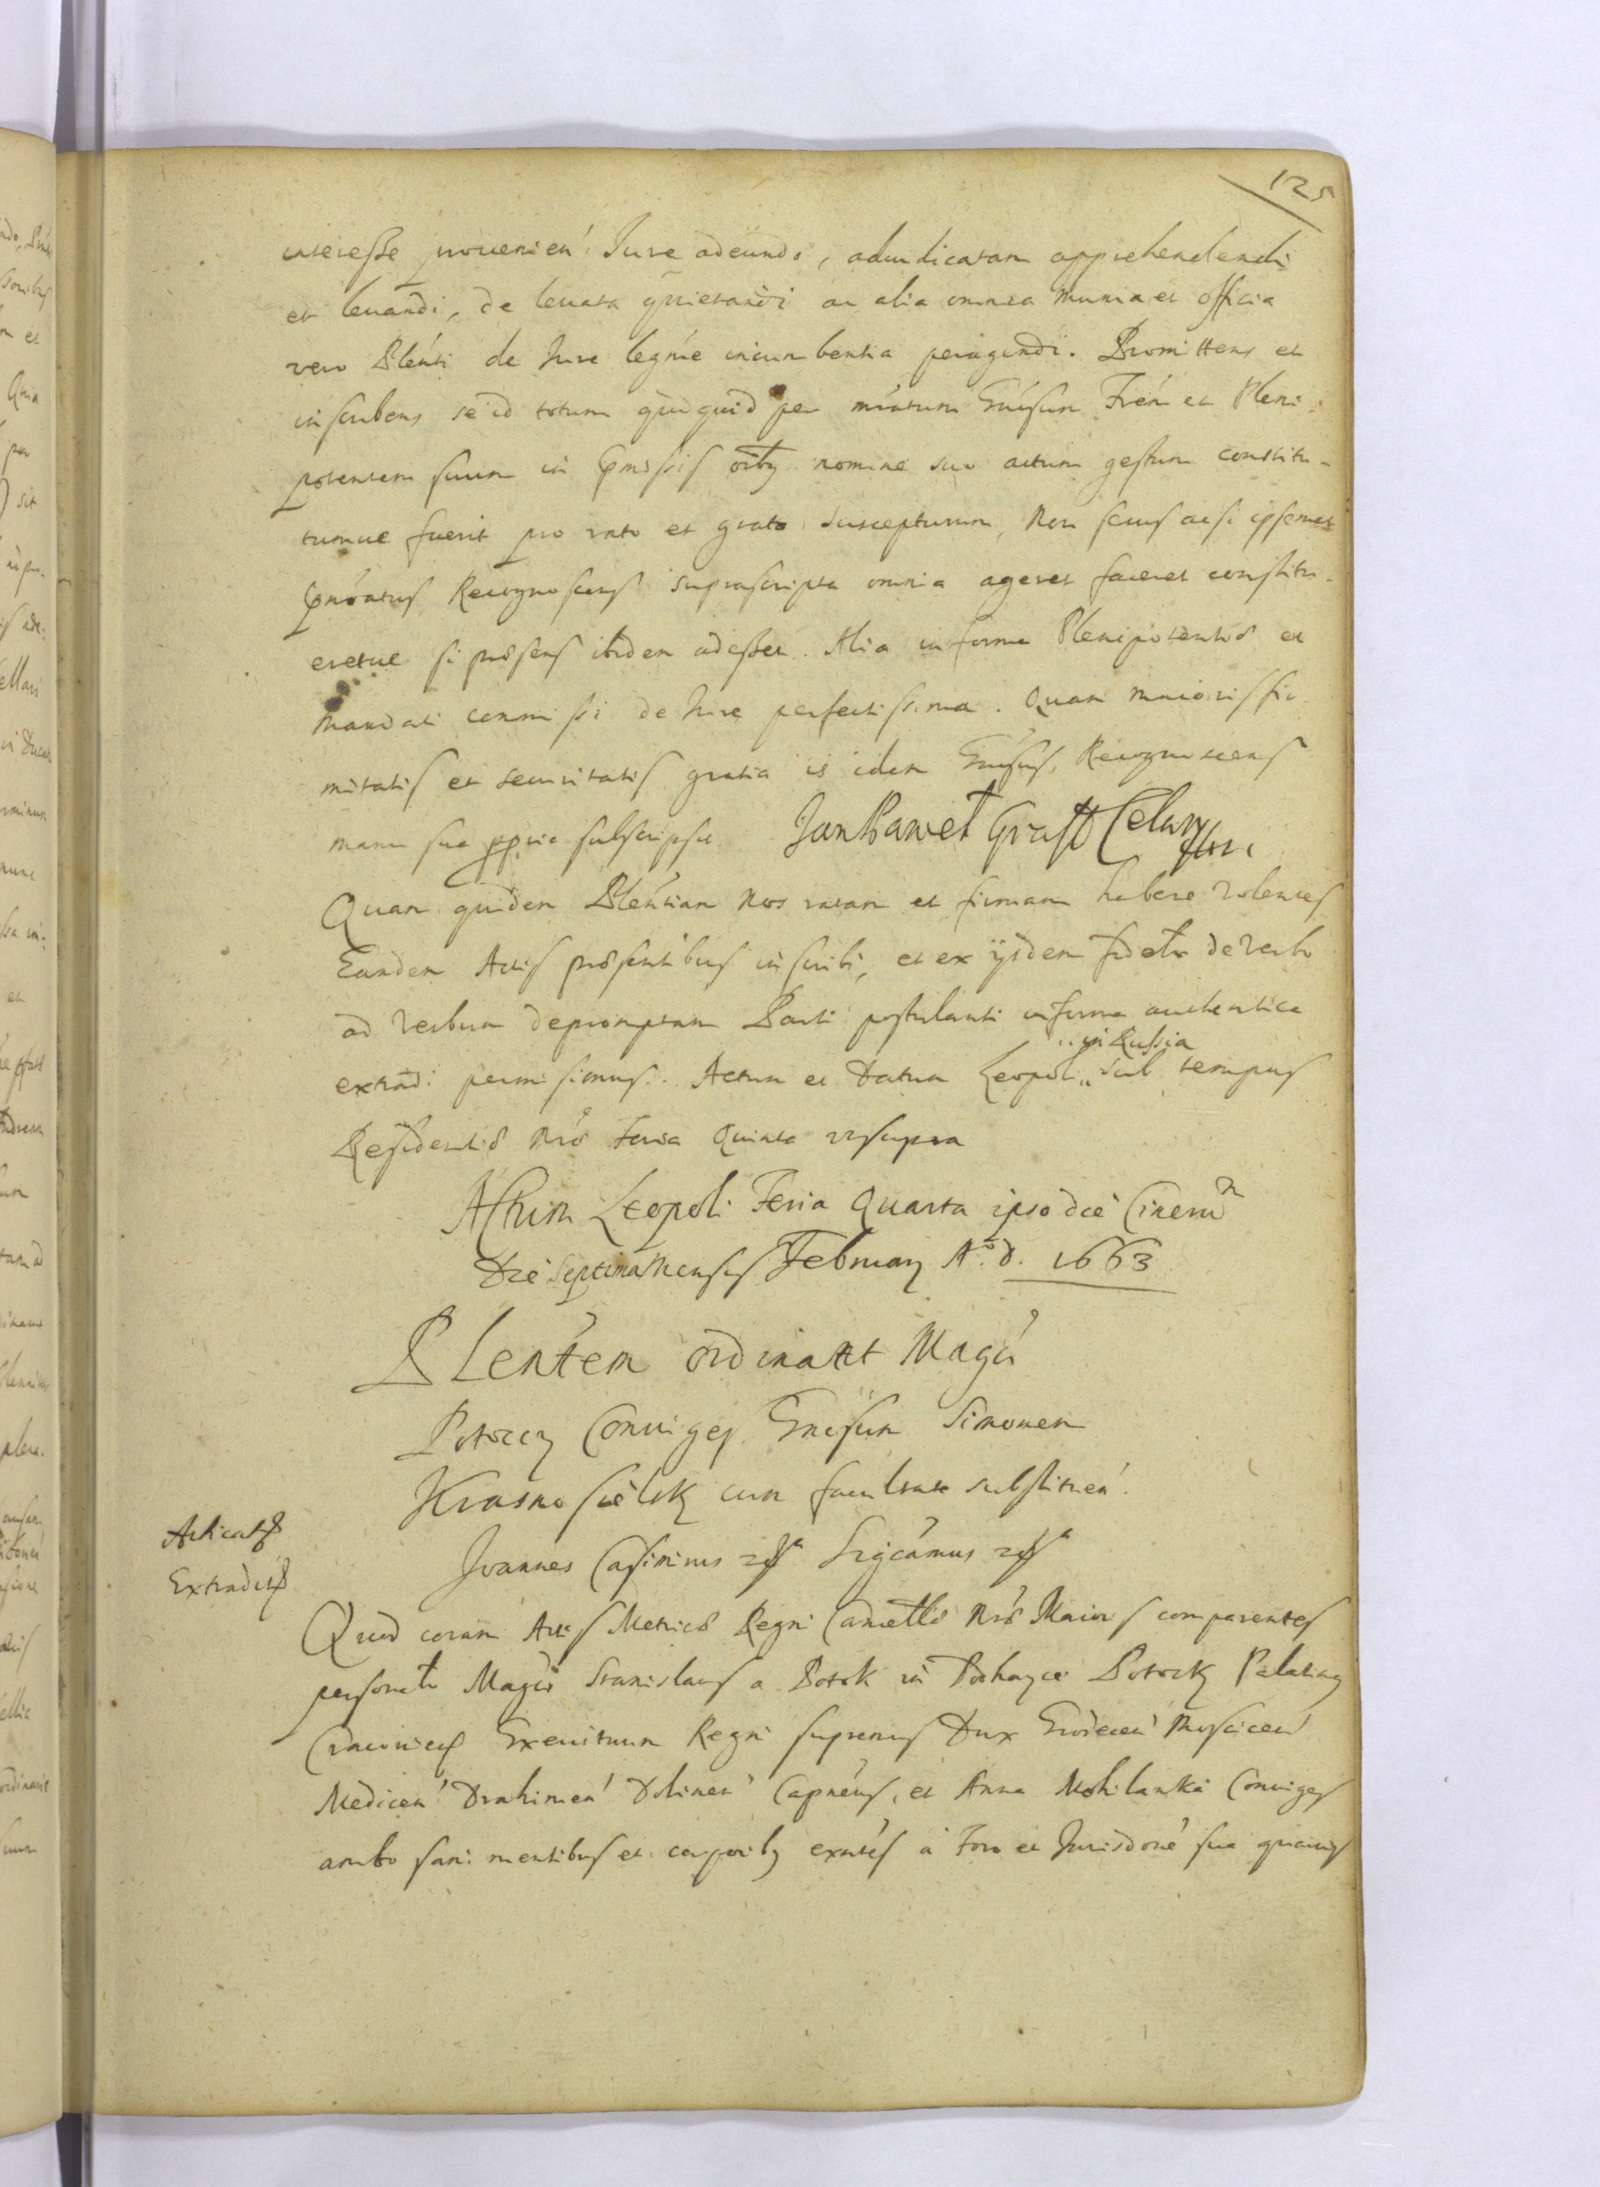 125
interesse provenien' Jure adeundi, adiudicatam apprehendendi
et levandi, de levata quietandi ac alia omnia munia et officia
vero Plen'ti de Jure legn'e incumbentia peragendi. Promittens et
inscribens se id totum quidquid per m'ratum Gn'osum Fr'em et Pleni-
potentem suum in p'missis o'ibus nomine suo actum gestum constitu-
tumve fuerit pro rato et grato suscepturum, Non secus ac si ipsemet
p'noatus Recognoscens suprascripta omnia ageret faceret constitu-
eretve si præsens ibidem adesset. Alia in forma Plenipotentiæ et
Mandati commissi de Jure perfectissima. Quam maioris fir-
mitatis et securitatis gratia is idem Gn'osus Recognoscens
manu sua ppria subscripsit. Jan Paweł Graff Celary
Quam quidem Plen'tiam Nos ratam et firmam habere volentes
Eandem Actis præsentibus inscribi, et ex ijsdem fidel'r de Verbo
ad Verbum depromptam Parti postulanti in forma authentica
extradi permisimus. Actum et Datum Leopoli sub tempus
in Russia
Residentiæ N'ræ Feria Quinta ut supra
Actum Leopoli Feria Quarta ipso die Cinerum
Die Septima Mensis February A'o. D. 1663
Plen'tem ordinant Mag'ci
Potoccy Coniuges Gn'osum Simonem
Krasnosielsky cum facultate substituen'.
Acticat
Extradit
Joannes Casimirus Sig'camus
Quod coram Actis Metricæ Regni Can'cell'æ N'ræ Maioris comparentes
personal'r Mag'ci Stanislaus a Potok in Podhayce Potocky Palatinus
Cracovien' Exercituum Regni supremus Dux Grodecen' Moscicen'
Medicen' Drahimen' Dolinen' Capn'eus, et Anna Mohilanka Coniuges
ambo sani mentibus et corporibus exn'tes a Foro et Jurisd'one sua quavis